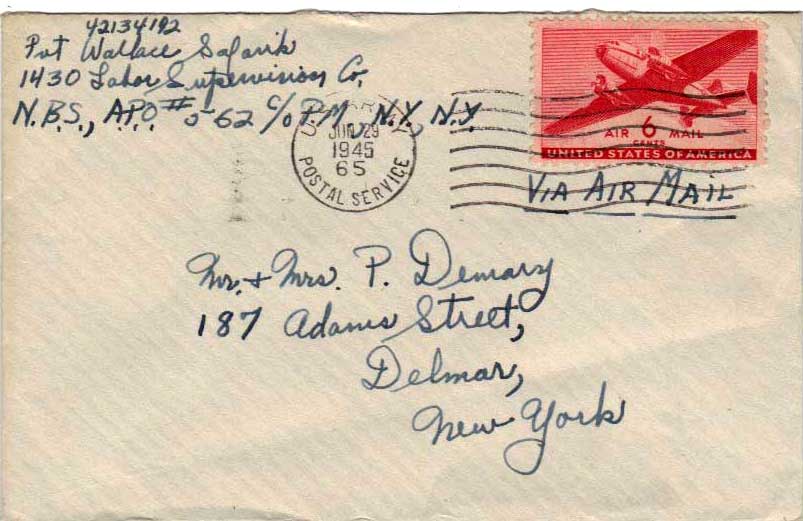 42134192
Pvt Wallace Safarik
1430 Labor Supervision Co.
N.B.S., A.P.O. #562 c/o P.M., N.Y., N.Y.
U.S. ARMY
JUN 29
1945
65
POSTAL SERVICE
AIR 6 MAIL
CENTS
UNITED STATES OF AMERICA
VIA AIR MAIL
Mr. + Mrs. P. Demary
187 Adams Street,
Delmar,
New York